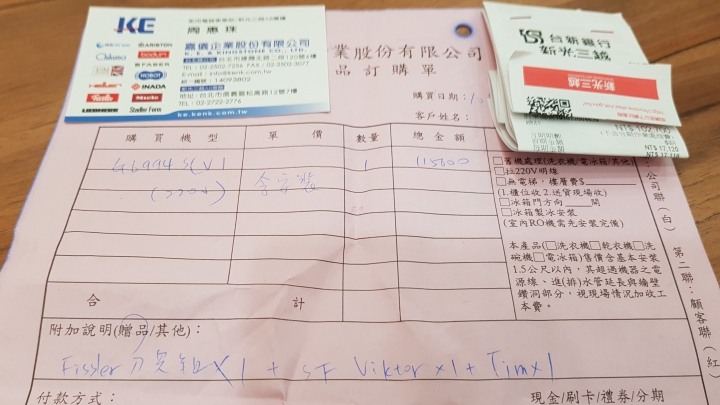 KE
周惠珠
嘉儀企業股份有限公司
K. E. & KINGSTONE CO., LTD.
TEL：02-2502-7256 FAX：02-2502-3077
E-mail：info@kenk.com.tw
統一編號：14093802
地址：台北市信義區松高路12號7樓
TEL：02-2722-2776
ke.kenk.com.tw
ARISTON
bodum
FABER
INADA
Miele
Stadler Form
業股份有限公司
品訂購單
購買日期：
客戶姓名：
台新銀行
新光三越
新光三越
NT$ 17,120
購買機型
單價
數量
總金額
1
115600
(220V)
含安裝
合計
□舊機處理(洗衣機/電冰箱/其他)
□拉220V明線
□無電梯，樓層費$
(1.櫃位收2.送貨現場收)
□冰箱門方向 間
□冰箱製冰安裝
(室內RO機需先安裝完備)
本產品(□洗衣機□乾衣機□洗
碗機□電冰箱)售價含基本安裝
1.5公尺以內，其超過機器之電
源線、進(排)水管延長與牆壁
鑽洞部分，視現場情況加收工
本費。
公司聯(白)
第二聯：顧客聯(紅)
附加說明(贈品/其他)：
Fissler 刀 x1 + SF Viktor x1 + Tim x1
付款方式：
現金/刷卡/禮券/分期